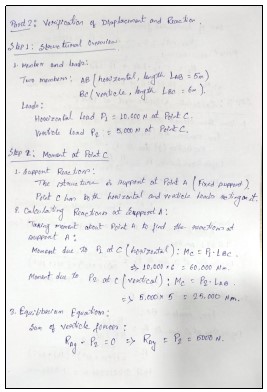 Part 2: Verification of Displacement and Reaction.
Step 1: Structural Overview
1. Member and loads:
Two members: AB (horizontal, length LAB = 5m)
BC (verticle, length LBC = 6m).
Loads:
Horizontal load P1 = 10,000 N at Point C.
Verticle load P2 = 5,000 N at Point C.
Step 2: Moment at Point C
1. Support Reactions:
The structure is support at Point A (Fixed support).
Point C has both horizontal and verticle loads acting on it.
2. Calculating Reactions at Support A:
Taking moment about Point A to find the reactions at
support A:
Moment due to P1 at C (horizontal): Mc = P1 · LBC.
=> 10,000 × 6 = 60,000 Nm.
Moment due to P2 at C (vertical): Mc = P2 · LAB
=> 5,000 × 5 = 25,000 Nm.
3. Equilibrium Equation:
Sum of verticle forces:
RAy - P2 = 0 => RAy = P2 = 5000 N.